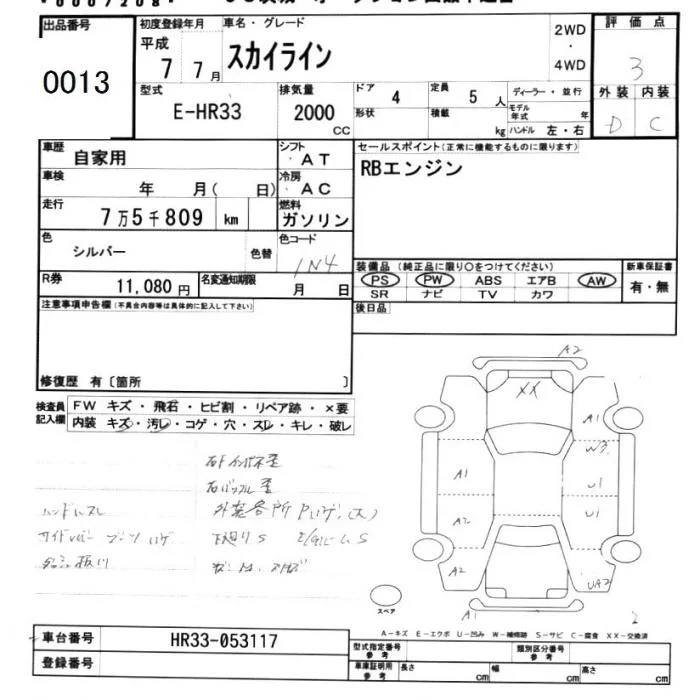 出品番号
0013
初度登録年月
平成
7 7月
車名・グレード
スカイライン
2WD
・
4WD
評価点
3
外装 内装
D C
型式
E-HR33
排気量
2000
CC
ドア
4
定員
5人
ディーラー・並行
形状
積載
kg
モデル年式 年
ハンドル 左・右
車歴
自家用
シフト
・AT
セールスポイント(正常に機能するものに限ります)
RBエンジン
車検
年 月( 日)
冷房
・AC
走行
7万5千809 km
燃料
ガソリン
色
シルバー
色替
色コード
1N4
R券
11,080円
名変通知期限
月 日
装備品(純正品に限り○をつけてください)
PS PW ABS エアB AW
SR ナビ TV カワ
新車保証書
有・無
後日品
注意事項申告欄(不具合内容等は具体的に記入して下さい)
修復歴 有〔箇所 〕
検査員記入欄
FW キズ・飛石・ヒビ割・リペア跡・×要
内装・キズ・汚レ・コゲ・穴・スレ・キレ・破レ
A2
XX
A1
W3
A1
U1
U1
A2
A2
UA2
A1
2
ハンドルスレ
外装各所
スペア
A-キズ E-エクボ U-凹み W-補修跡 S-サビ C-腐食 XX-交換済
車台番号
HR33-053117
登録番号
型式指定番号
参考
類別区分番号
参考
車庫証明用
参考
長さ cm
幅 cm
高さ cm